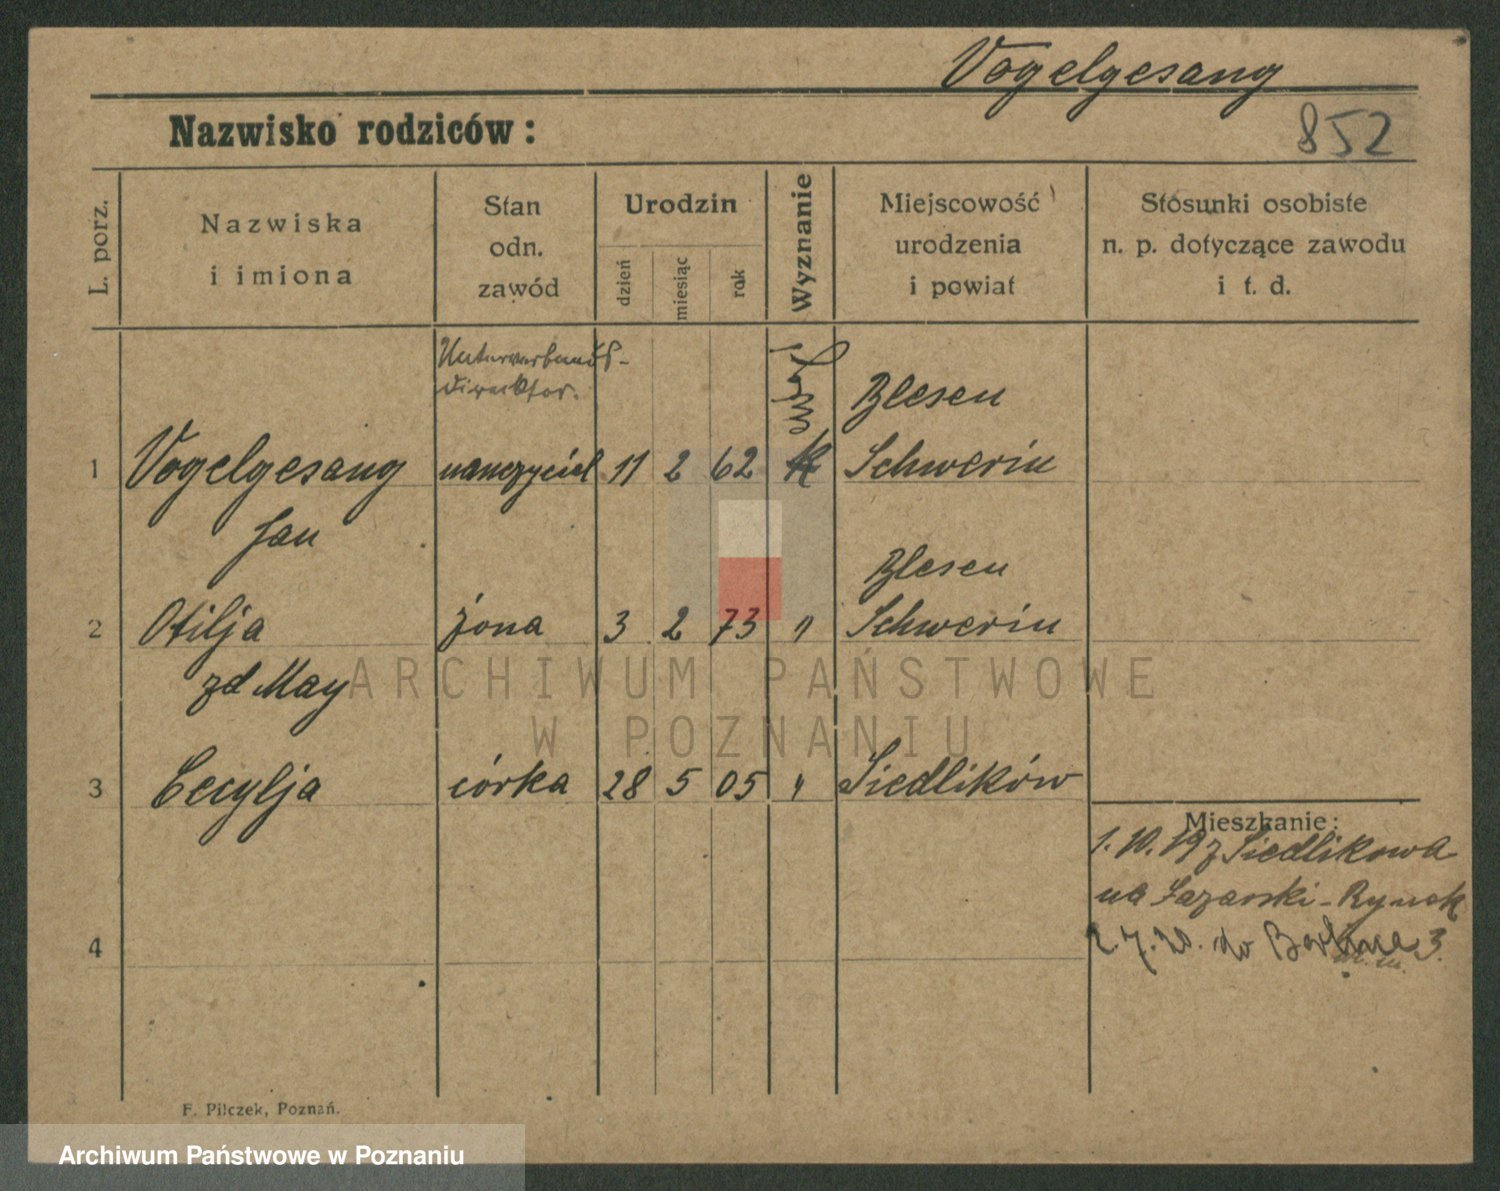 Vogelgesang
Nazwisko rodziców:
852
L. porz.
Nazwiska
i imiona
Stan
odn.
zawód
Urodzin
dzień
miesiąc
rok
Wyznanie
Miejscowość
urodzenia
i powiat
Stosunki osobiste
n. p. dotyczące zawodu
i t. d.
Unterverbands-
direktor.
Blesen
1 Vogelgesang nauczyciel 11 2 62 Schwerin
Jan
Blesen
2 Otilja żona 3 2 73 " Schwerin
zd May
3 Cecylja córka 28 5 05 " Siedlików
Mieszkanie:
1.10.19 z Siedlikowa
na Łazarski-Rynek
2.7.20. do Berlina 3.
4
F. Pilczek, Poznań.
ARCHIWUM PAŃSTWOWE
W POZNANIU
Archiwum Państwowe w Poznaniu